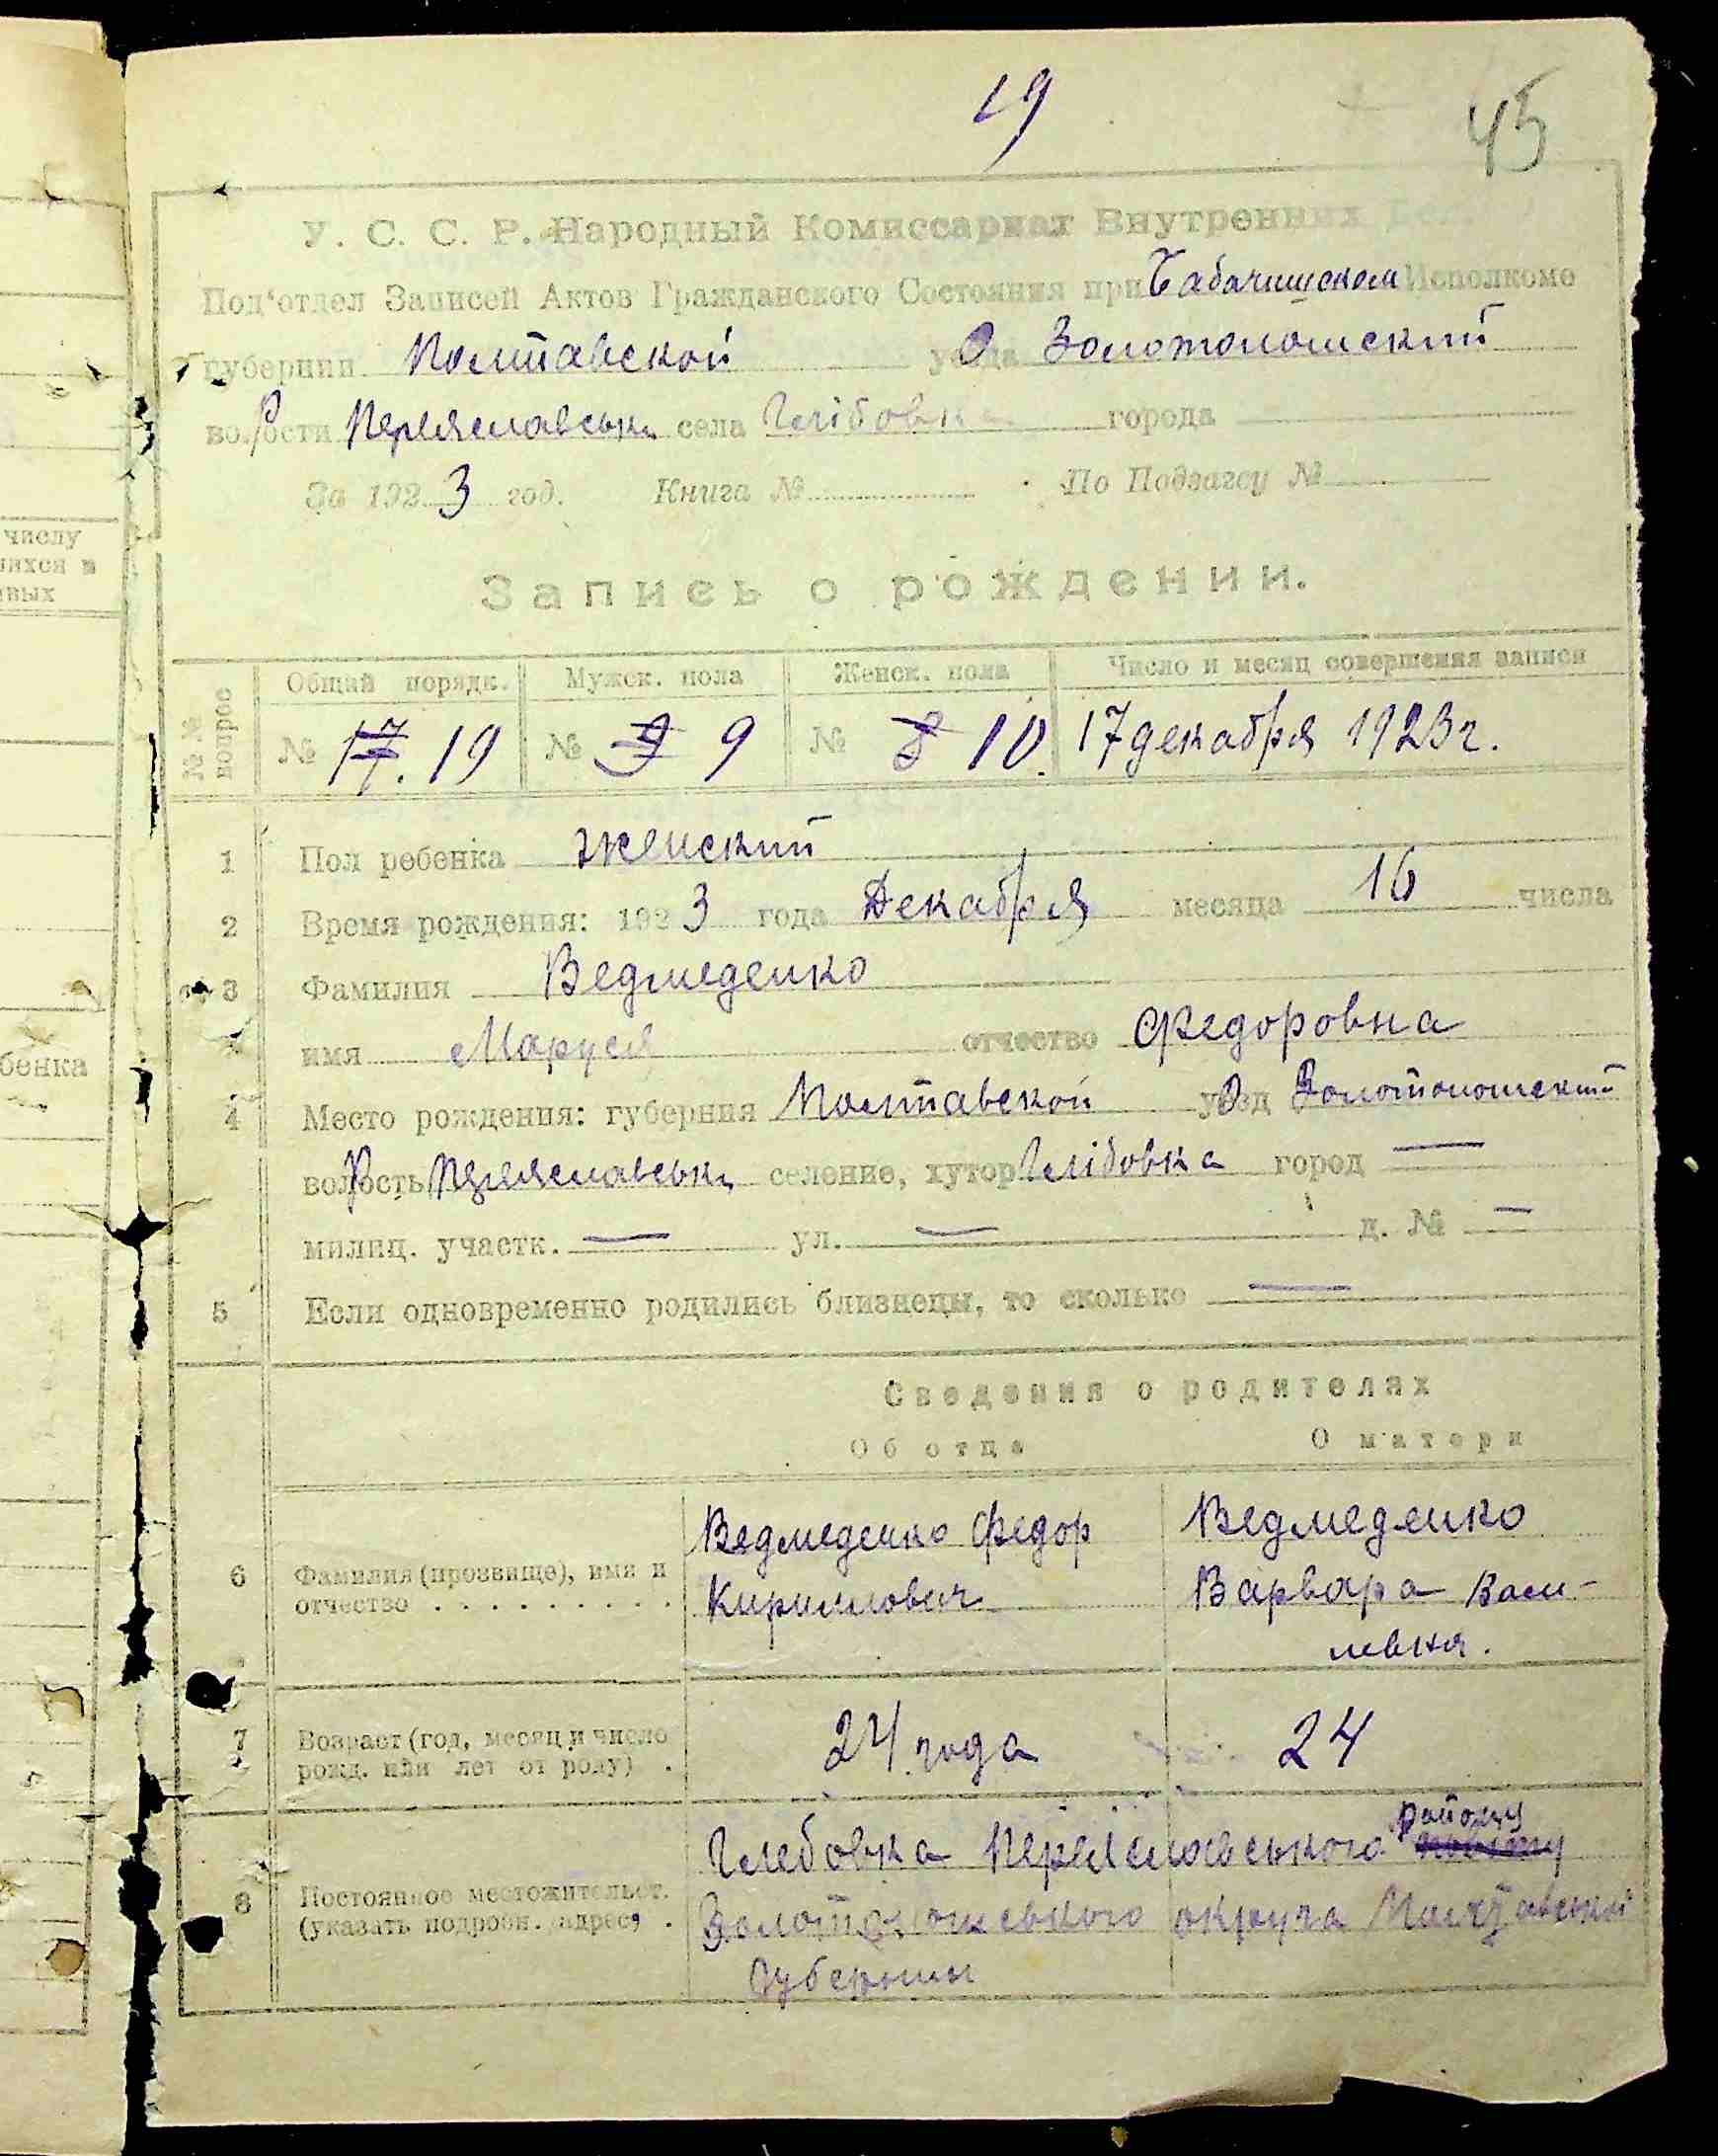 19
45
У. С. С. Р. Народный Комиссариат Внутренних
Под'отдел Записей Актов Гражданского Состояния при Исполкоме
губернии Полтавской О Золотоношский
Р Переяславськ села Глібовка города
За 1923 год. Книга № По Подзагсу №
Запись о рождении.
№№ вопрос Общий порядк. Мужск. пола Женск. пола Число и месяц совершения записи
№ 17. 19 № 9 № 8 10. 17 декабря 1923 г.
1 Пол ребенка женский
2 Время рождения: 1923 года Декабря месяца 16 числа
3 Фамилия Ведмеденко
имя Маруся отчество Федоровна
4 Место рождения: губерния Полтавской О Золотоношский
Р Переяславськ селение, хутор Глібовка город —
милиц. участк. — ул. — д. № —
5 Если одновременно родились близнецы, то сколько —
Сведения о родителях
Об отце О матери
6 Фамилия (прозвище), имя и отчество . . . . . . . . .
Ведмеденко Федор
Кириллович
Ведмеденко
Варвара Васи-
левна.
7 Возраст (год, месяц и число рожд. или лет от роду) .
24 года
24
8 Постоянное местожительст. (указать подробн. адрес) .
Глебовка Переяславського району
Золотоношського округа Полтавськой
Губернии
числу
бенка